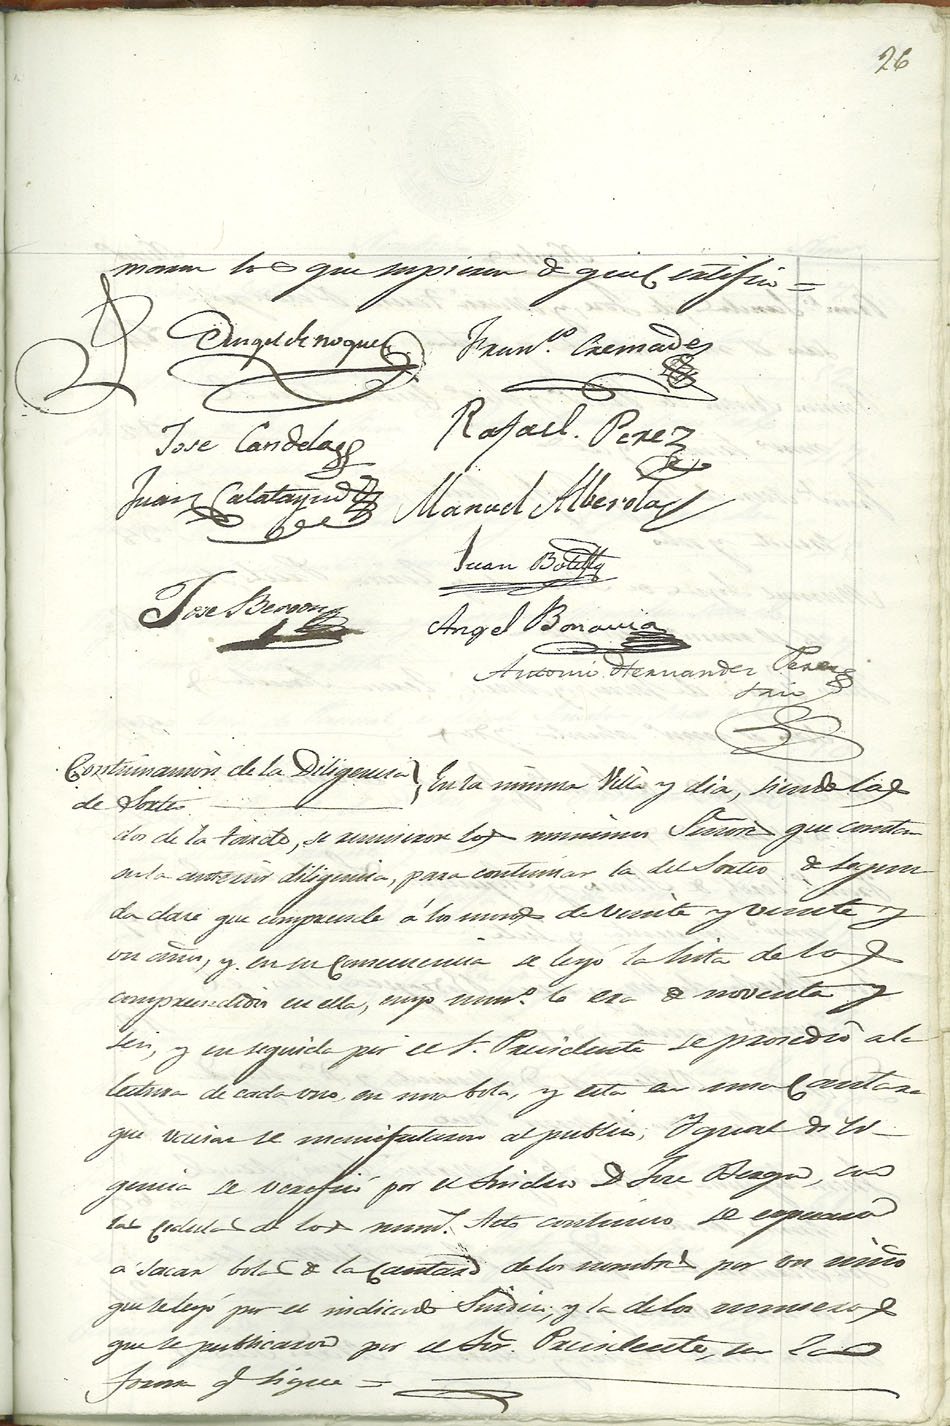 26
maron los que supieron de que Certifico =
Angel de Noguer Franco. Cremades
Jose Candela Rafael. Perez
Juan Calatayud Manuel Alberola
Juan Botella
Jose
Angel Bonavia
Antonio Hernandez Perez
Srio
Continuacion de la Diligencia En la misma Villa y dia, siendo las
de Sorteo
dos de la tarde, se reunieron los mismos Señores que constan
en la anterior diligencia, para continuar la del Sorteo de segun
da clase que comprende á los mozos de veinte y veinte y
un años, y en su Consecuencia se leyó la lista de los
comprendidos en ella, cuyo numo. lo era de noventa y
seis, y en seguida por el Sr. Presidente se procedió a la
lectura de cada uno en una bola, y esta en una Cantara
que vacias se manifestaron al publico, Ygual dili
gencia se verificó por el Sindico D Jose con
las cedulas de los nums. Acto continuo se empezaron
á sacar bolas de la Cantara de los nombres por un niño
que se leyó por el indicado Sindico, y la de los numeros
que se publicaron por el Sor. Presidente, en la
forma q sigue =